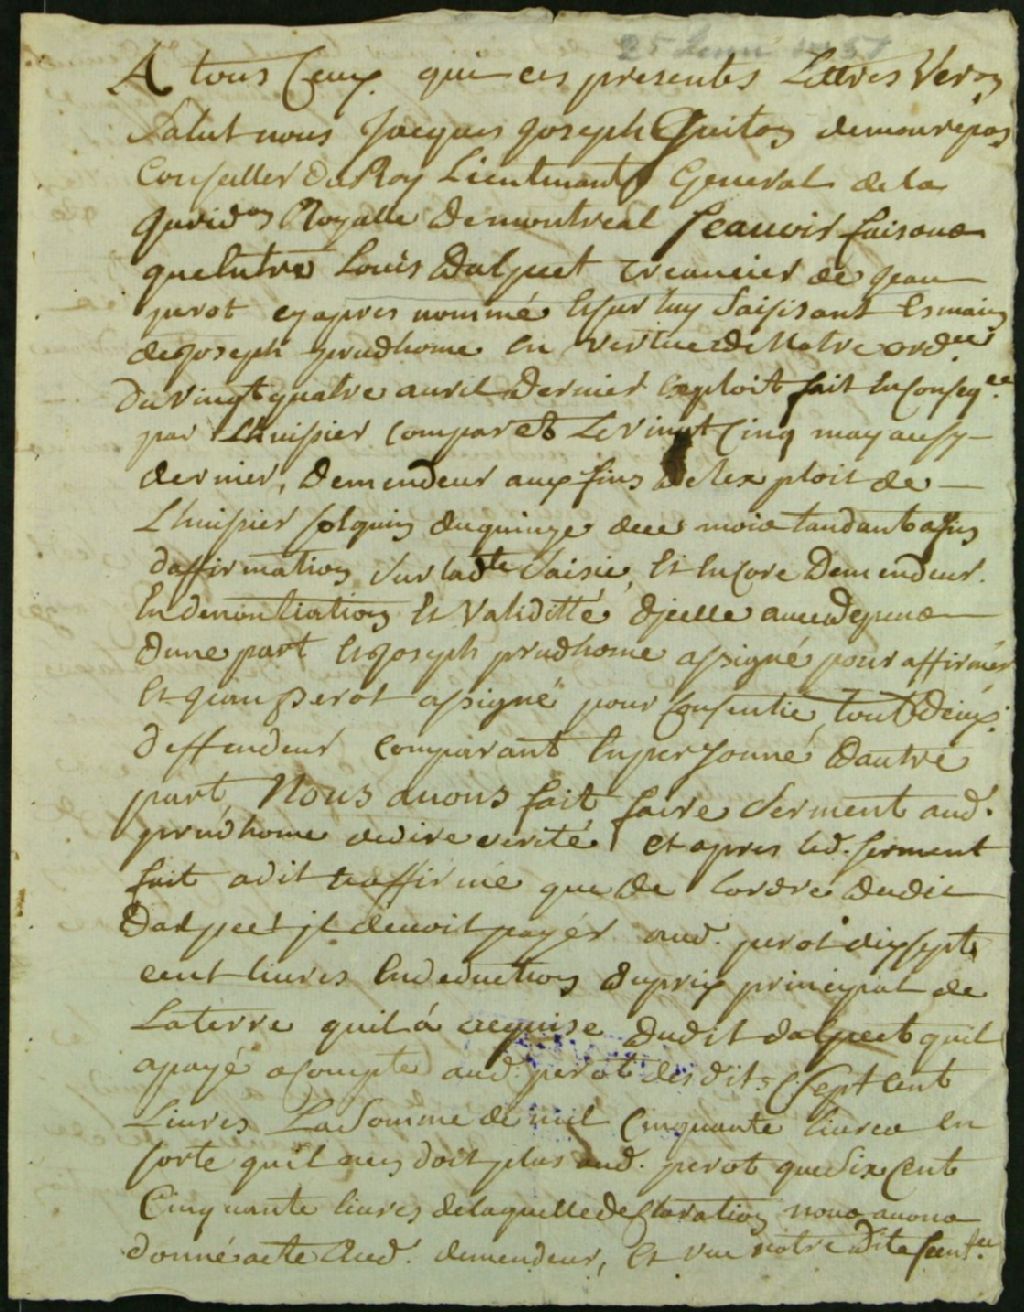 A tous Ceux que ces presentes Lettres Veron
Salut nous Jacques Joseph Guiton demonrepos
Conseiller Du Roy Lieutenant General de la
Juridon Royalle demontreal scauoir faisons
quelutre Louis Dalpect creancier de Jean
perot cyapres nommé Et sur luy Saisisant Esmains
de Joseph prudhome en vertue de Notre ordce
Du vingt quatre auril dernier Exploit fait En Conseqce
par Lhuissier comparet Le vingt Cinq may ausy
dernier, demendeur aux fins de lexploit de
Lhuissier duquinze dece mois tandant afins
daffirmation Sur ladte Saisie, Et Encore Demendeur
En denontiation Et Validitté dicelle auec depens
dune part Et Joseph prudhome assigné pour affirmer
Et Jean perot assigné pour Consentir, tout deux
deffendeur comparant En personne dautre
part, Nous auons fait faire Serment aud.
prudhome de dire verité, et apres led. serment
fait adit et affirmé que de lordre dudit
Dalpect jl deuoit payer aud. perot dixsept
cent liures En deduction duprix principal de
La terre quil á acquise dudit dalpect quil
a payé acompte aud. perot desdits 17 Sept Cent
Liures La Somme de mil Cinquante liures en
sorte quil nen doit plus aud. perot que Six Cent
Cinquante liures delaquelle declaration nous auons
donné acte Aud. demendeur, Et vue notre dite Sentce